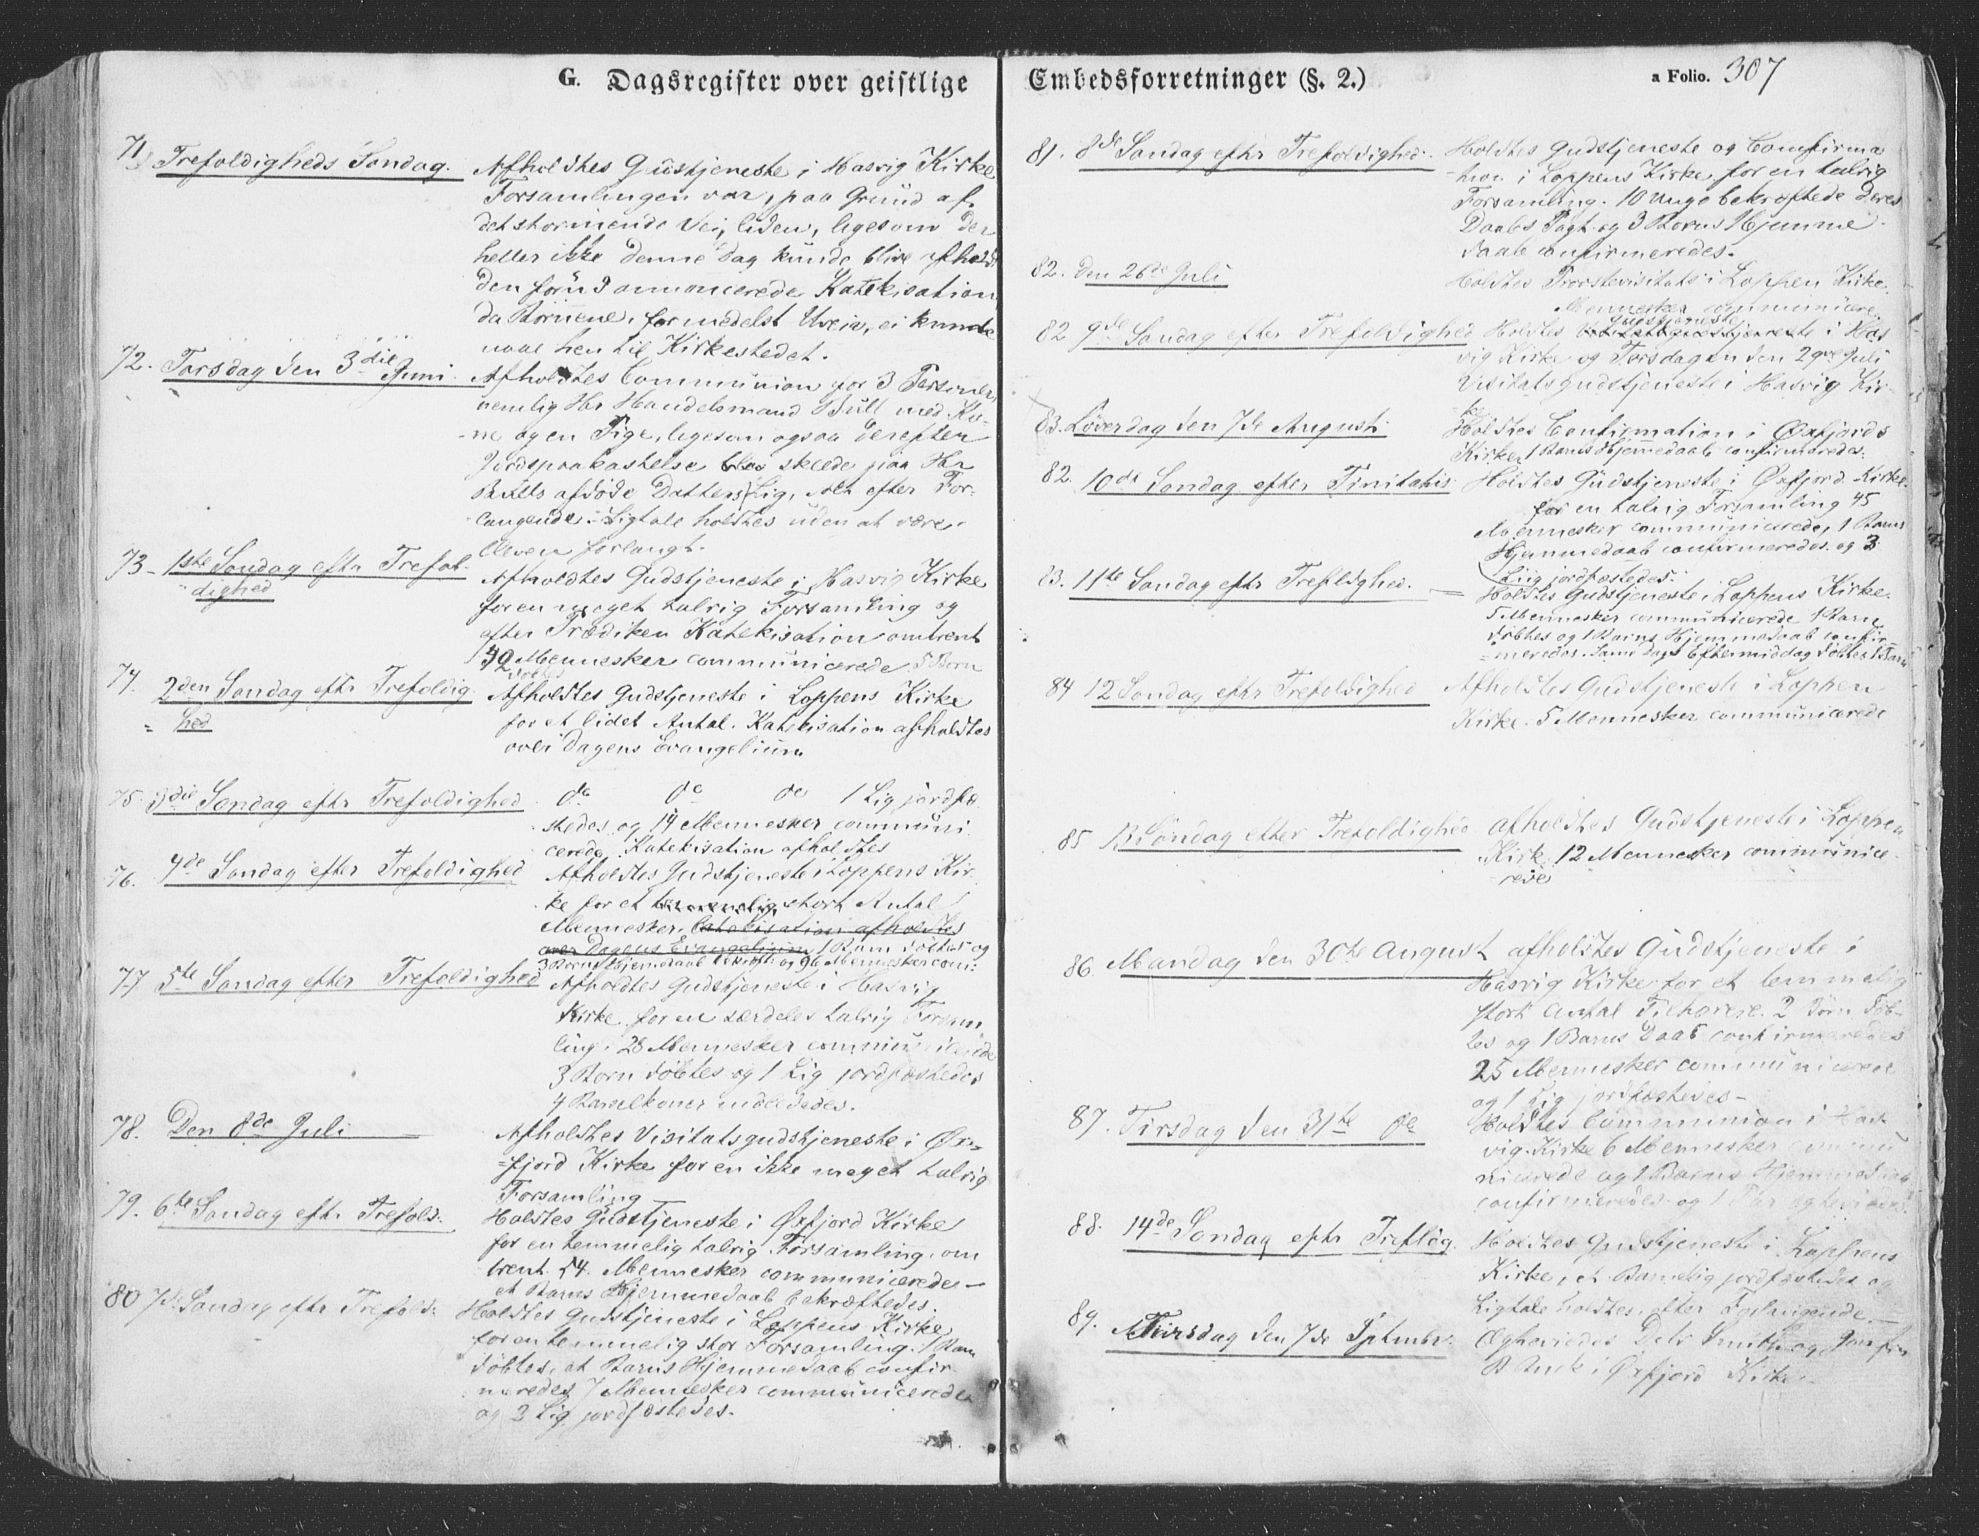 G. Dagsregister over geistlige
71) Trefoldigheds Søndag.
Afholdtes Gudstjeneste i Hasvig Kirke
Forsamlingen var, paa Grund af
det stormende Veir, liden, ligesom der
heller ikke denne Dag kunde blive afholdt
den forud annoncerede Katekisation
da Børnene, formedelst Uveir, ei kunde
naae hen til Kirkestedet.
72. Torsdag den 3die Juni.
Afholdtes Communion for 3 Personer,
nemlig Hr Handelsmand Bull med Ko-
ne og en Pige, ligesom ogsaa derefter
Jordspaakastelse blev skeede paa Hr
afdøde Datters Lig, efter For-
langende. Ligtale holdtes uden at være
bleven forlangt.
73 - 1ste Søndag efter Trefol-
dighed
Afholdtes Gudstjeneste i Hasvig Kirke
for en meget talrig Forsamling og
efter Prædiken Katekisation omtrent
Mennesker communicerede 5 Børn
døbtes
74. 2den Søndag eftr Trefoldig-
hed
Afholdtes Gudstjeneste i Loppens Kirke
for et lidet Antal. Katekisation afholdtes
over Dagens Evangelium
75. 3die Søndag eftr Trefoldighed
do do do 1 Lig jordfæ-
stedes og 14 Mennesker communi-
cerede. Katekisation afholdtes
76. 4de Søndag efter Trefoldighed
Afholdtes Gudstjeneste i Loppens Kir-
ke for et temmelig stort Antal
Mennesker. Catekisation afholdtes
over Dagens Evangelium 1 Barn døbtes og
3 Børns Hjemmedaab bekræft. og 96 Mennesker com:
77 5te Søndag efter Trefoldighed
Afholdtes Gudstjeneste i Hasvig
Kirke for en særdeles talrig Forsam-
ling. 28 Mennesker communicerede
3 Børn døbtes og 1 Lig jordfæstedes
4 Barselkoner indledede.
78. Den 8de Juli
Afholdtes Visitatsgudstjeneste i Øx-
fjord Kirke for en ikke meget talrig
Forsamling
79. 6te Søndag eftr Trefold:
Holdtes Gudstjeneste i Øxfjord Kirke
for en temmelig talrig Forsamling, om
trent 54 Mennesker communicerede
et Barns Hjemmedaab bekræftedes.
80 7de Søndag eftr Trefold:
Holdtes Gudstjeneste i Loppens Kirke
for en temmelig stor Forsamling. 1 Barn
døbtes, et Barns Hjemmedaab confir-
meredes 7 Mennesker communicerede
og 2 Lig jordfæstedes.
Embedsforretninger (§. 2.)
a Folio. 307
81. 8de Søndag efter Trefoldighed.
Holdtes Gudstjeneste og Confirma
tion i Loppens Kirke for en talrig
Forsamling. 10 Unge bekræftede deres
Daabs Pagt og 3 Børns Hjemme-
daab confirmeredes.
82. Den 26de Juli
Holdtes Provstevisitats i Loppen Kirke.
Mennesker communicere.
82 9de Søndag efter Trefoldighed
Holdtes Gudstjeneste i Has
vig Kirke og Torsdagen den 29de Juli
Visitatsgudstjeneste i Hasvig Kir-
ke
83. Løverdag den 7de August
Holdtes Confirmation i Øxfjords
Kirke, 1 Barns Hjemmedaab confirmeredes.
82. 10de Søndag efter Trinitatis
Holdtes Gudstjeneste i Øxfjord Kirke
for en talrig Forsamling 45
Mennesker communicerede, 1 Barns
Hjemmedaab confirmeredes og 3
Liig jordfæstedes.
83. 11te Søndag eftr Trefldghed.
Holdtes Gudstjeneste i Loppens Kirke.
5 Mennesker communicerede 1 Barn
døbtes og 1 Barns Hjemmedaab confir-
meredes. Samme dags Eftermiddag døbtes 1 Barn
84 12 Søndag eftr Trefoldighed
Afholdtes Gudstjeneste i Loppen
Kirke. 5 Mennesker communicerede
85 13 Søndag efter Trefoldighed
afholdtes Gudstjeneste i Loppen
Kirke, 12 Mennesker communice-
rede
86. Mandag den 30te August
afholdtes Gudstjeneste i
Hasvig Kirke for et temmelig
stort Antal Tilhørere. 2 Børn døb-
tes og 1 Barns Daab confirmeredes
25 Mennesker communicerede
og 1 Lig jordfæstedes-
87. Tirsdag den 31te do
Holdtes Communion i Has-
vig Kirke 6 Mennesker commu
nicerede og 1 Barns Hjemmedaab
confirmeredes og 1 Par ægteviedes
88. 14de Søndag eftr Trefldg.
Holdtes Gudstjeneste i Loppens
Kirke, et Barnelig jordfæstedes og
Ligtale holdtes efter Forlangende.
89. Tirsdag den 7de Sptmbr.
Ægteviedes og Jomfru
i Øxfjord Kirke.